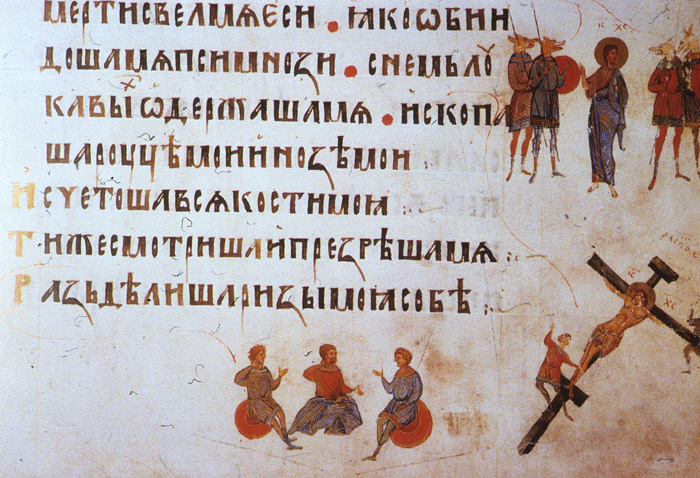 мертисвелмѧеси · ꙗкоѡбии
дошамѧпсимнози · снемьло
кавыⷯѡдержашамѧ · ископа
шароуцѣмоиинозѣмои
исчетошавсѧкостимоꙗ
тижесмотришаипрезрѣшамѧ
разьдѣлишаризымоꙗсобѣ
ІС ХС
ІС ХС